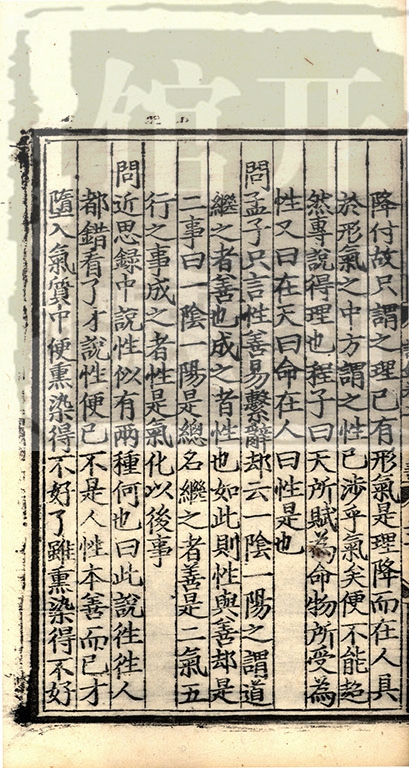 降付故只謂之理已有形氣是理降而在人具
於形氣之中方謂之性已涉乎氣矣便不能超
然專說得理也程子曰天所賦為命物所受為
性又曰在天曰命在人曰性是也
問孟子只言性善易繫辭却云一陰一陽之謂道
繼之者善也成之者性也如此則性與善却是
二事曰一陰一陽是總名繼之者善是二氣五
行之事成之者性是氣化以後事
問近思録中說性似有兩種何也曰此說徃徃人
都錯看了才說性便已不是人性本善而已才
墮入氣質中便熏染得不好了雖熏染得不好